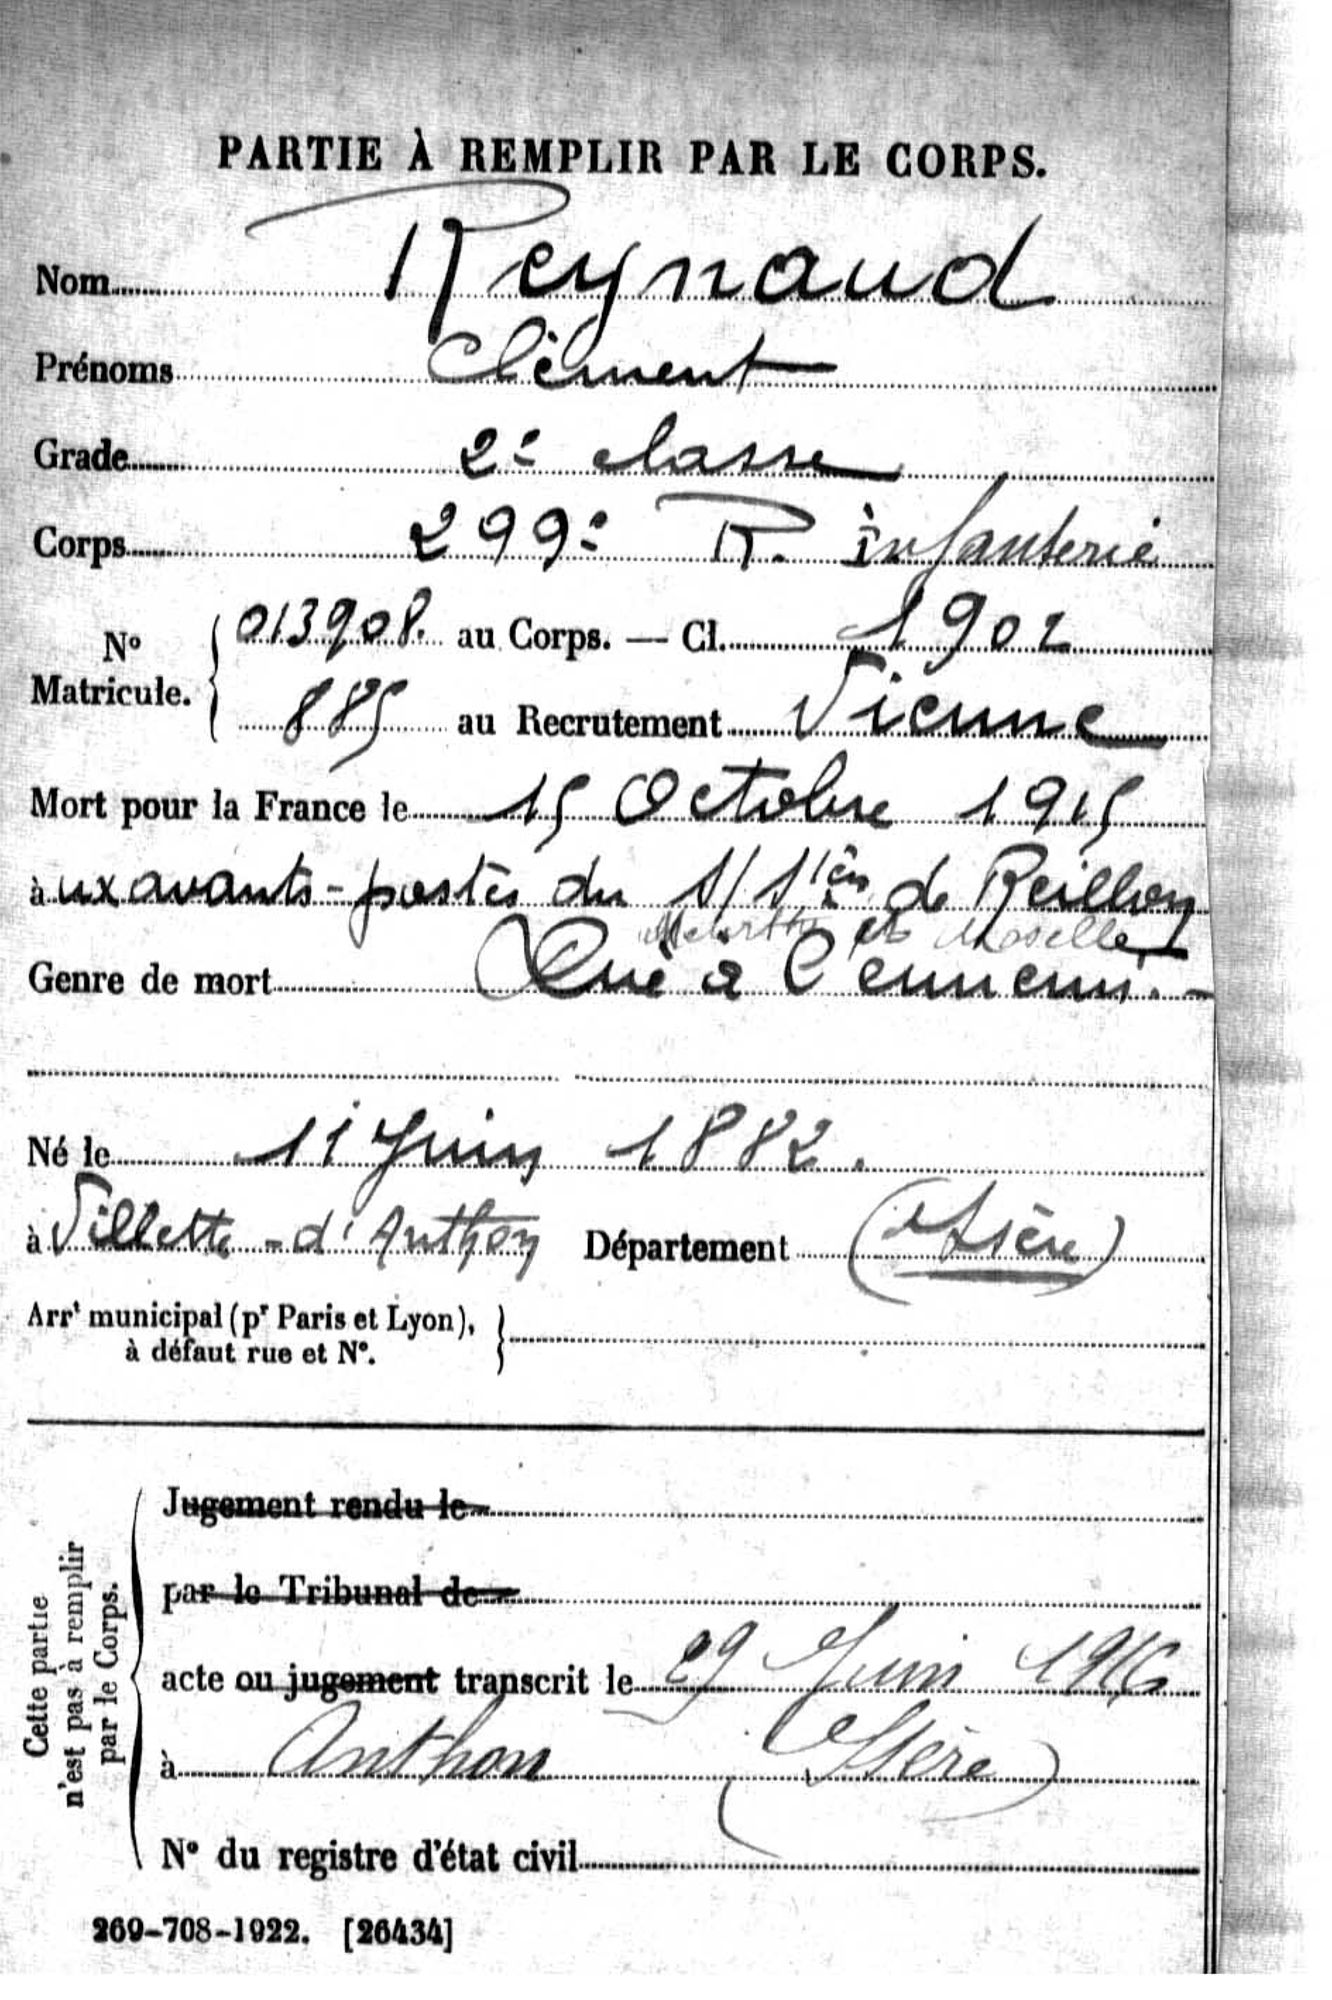 PARTIE À REMPLIR PAR LE CORPS.
Nom Reynaud
Prénoms Clément
Grade 2e classe
Corps 299e R. Infanterie
No Matricule. 013908. au Corps. — Cl. 1902
885 au Recrutement Vienne
Mort pour la France le 15 Octobre 1915
aux avants-postes du de Reillon
Meurthe et Moselle
Genre de mort Tué à l'ennemi. -
Né le 11 Juin 1882.
à Villette-d'Anthon Département (Isère)
Arrt municipal (pr Paris et Lyon),
à défaut rue et No.
Cette partie
n'est pas à remplir
par le Corps.
Jugement rendu le
par le Tribunal de
acte ou jugement transcrit le 29 Juin 1916
à Anthon (Isère)
No du registre d'état civil
269-708-1922. [26434]